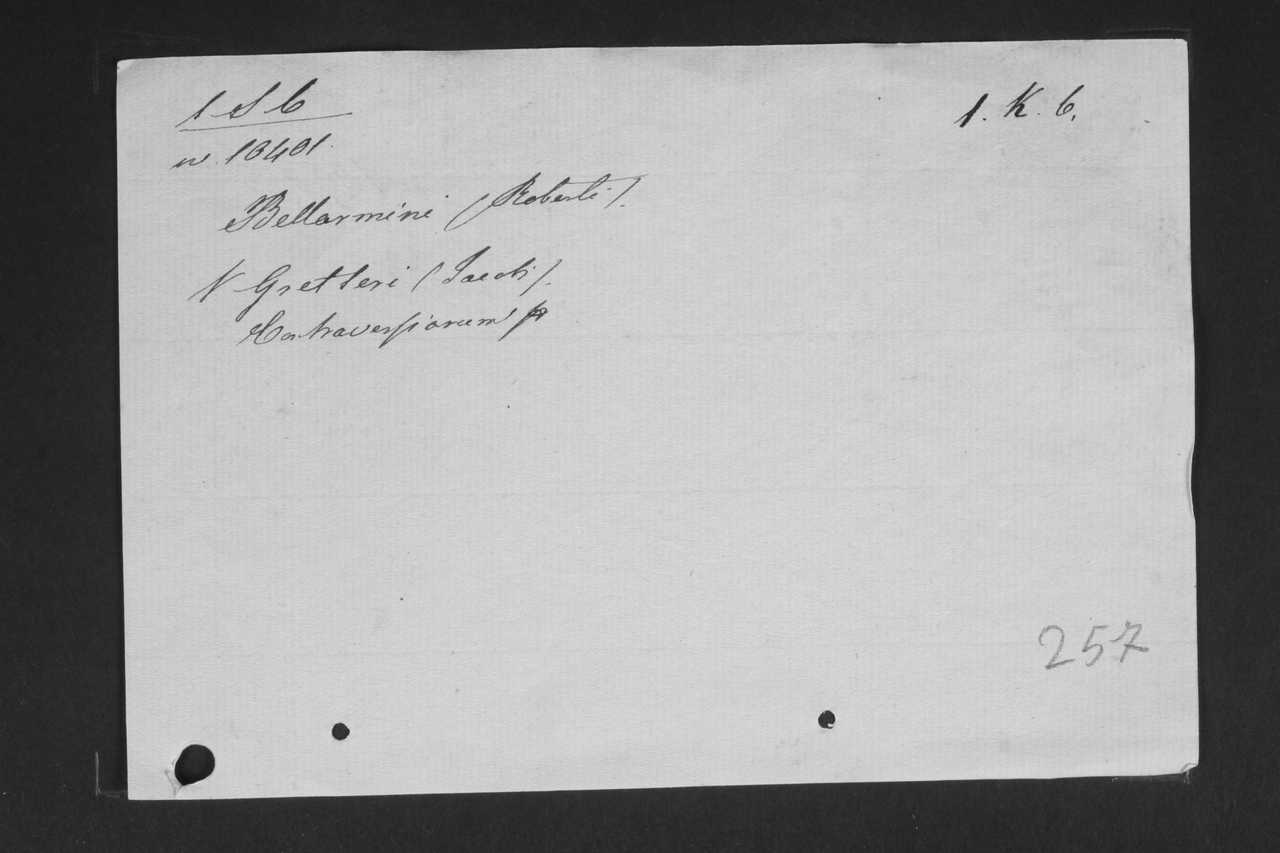 1 S 6
1. K. 6.
n. 10401.
Bellarmini (Roberti).
V Gretseri (Jacobi).
Controversiarum
257